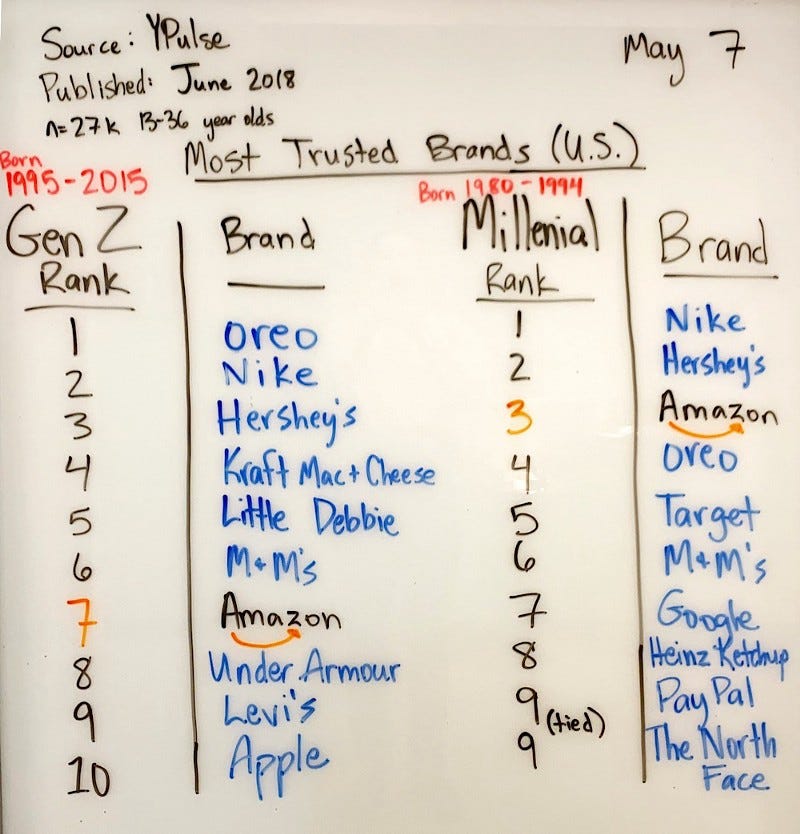 Source: YPulse
May 7
Published: June 2018
n=27k 13-36 year olds
Most Trusted Brands (U.S.)
Born
1995-2015
Born 1980-1994
Gen Z Brand Millenial Brand
Rank Rank
1 Oreo 1 Nike
2 Nike 2 Hershey's
3 Hershey's 3 Amazon
4 Kraft Mac+Cheese 4 Oreo
5 Little Debbie 5 Target
6 M+M's 6 M+M's
7 Amazon 7 Google
8 Under Armour 8 Heinz Ketchup
9 Levi's 9 (tied) PayPal
10 Apple 9 The North
Face